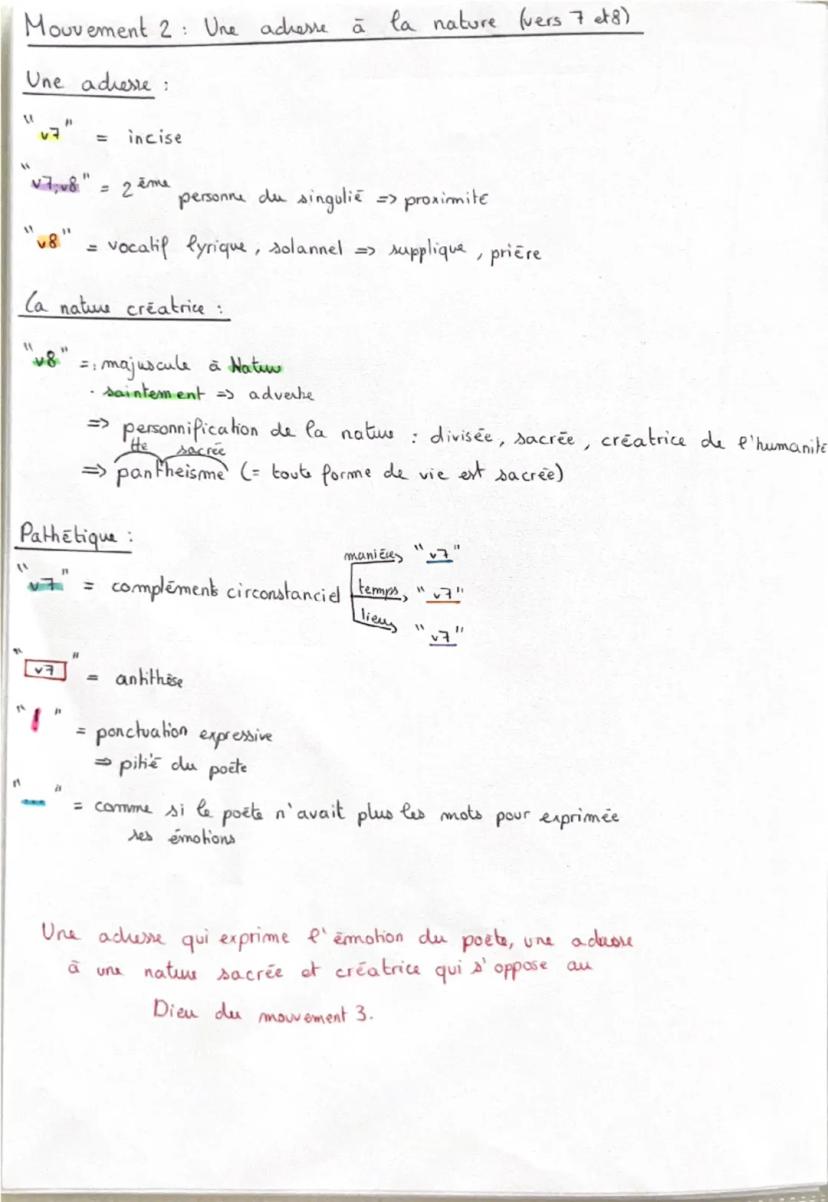 Mouvement 2 : Une adresse à la nature (vers 7 et 8)
Une adresse :
"v7" = incise
"v7, v8" = 2ème personne du singulié => proximité
"v8" = vocatif lyrique, solannel => supplique, prière
La nature créatrice :
"v8" = · majuscule à Nature
· saintement => adverbe
=> personnification de la nature : divisée, sacrée, créatrice de l'humanité
tte sacrée
=> pantheisme (= toute forme de vie est sacrée)
Pathétique :
"v7" = compléments circonstanciel
manière, "v7"
temps, "v7"
lieu, "v7"
"v7" = antithèse
"!" = ponctuation expressive
=> pitié du poète
"..." = comme si le poète n'avait plus les mots pour exprimée
ses émotions
Une adresse qui exprime l'émotion du poète, une adresse
à une nature sacrée et créatrice qui s'oppose au
Dieu du mouvement 3.